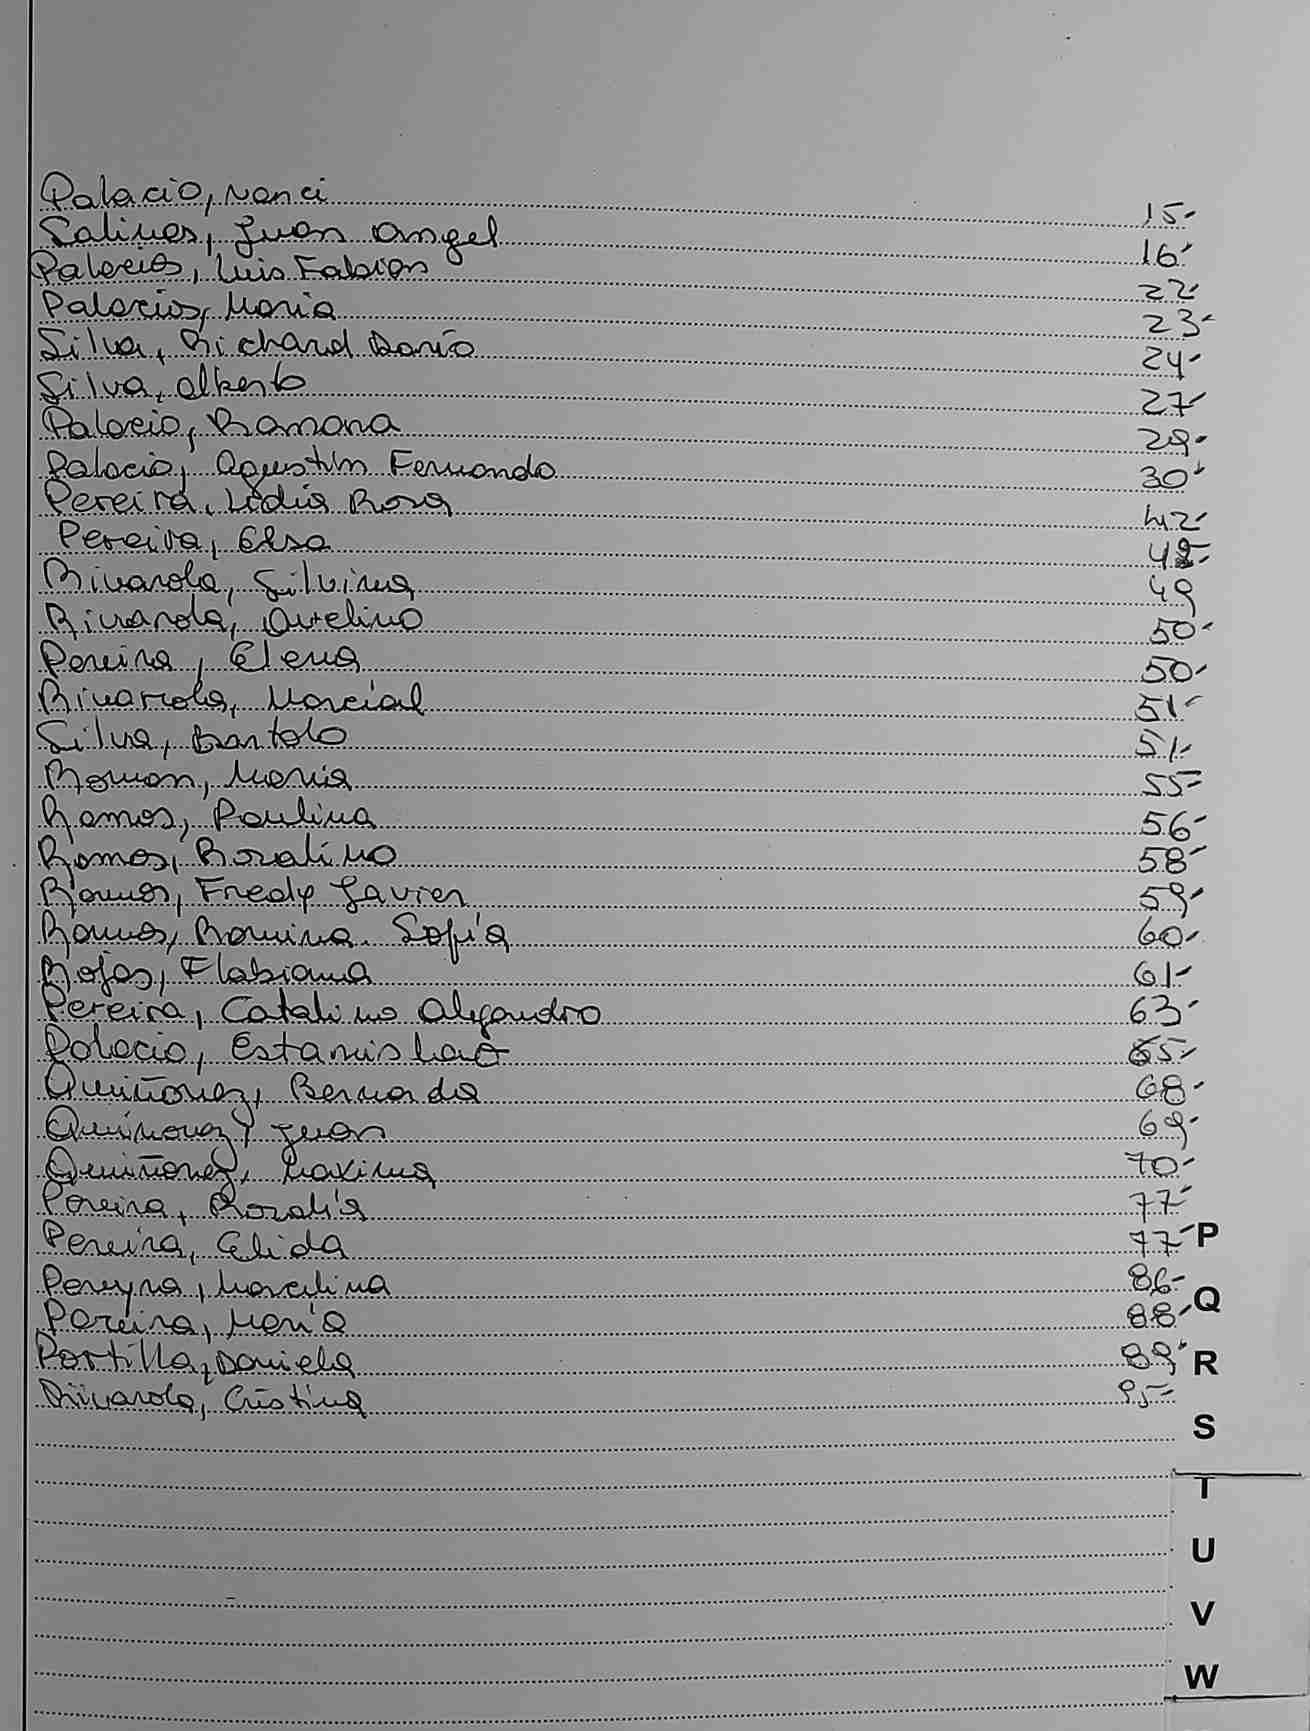 Palacio, Nanci 15-
Salinas, Juan Angel 16-
Palacios, Luis Fabian 22-
Palacios, Maria 23-
Silva, Richard Dario 24-
Silva, Alberto 27-
Palacio, Ramona 29-
Palacio, Agustín Fernando 30-
Pereira, Lidia Rosa 42-
Pereira, Elsa
Rivarola, Silvina 49
Rivarola, Avelino 50-
Pereira, Elena 50-
Rivarola, Marcial 51-
Silva, Bartolo 51-
Roman, Maria 55-
Ramos, Paulina 56-
Ramos, Rosalino 58-
Ramos, Fredy Javier 59-
Ramos, Romina Sofía 60-
Rojas, Flabiana 61-
Pereira, Catalino Alejandro 63-
Palacio, Estanislao 65-
Quiñonez, Bernarda 68-
Quiñonez, Juan 69-
Quiñonez, Maxima 70-
Pereira, Rosalía 77-
Pereira, Elida 77-
P
Pereyra, Marcelina 86-
Q
Pereira, María 88-
Portilla, Daniela 89-
R
Rivarola, Cristina 95-
S
T
U
V
W